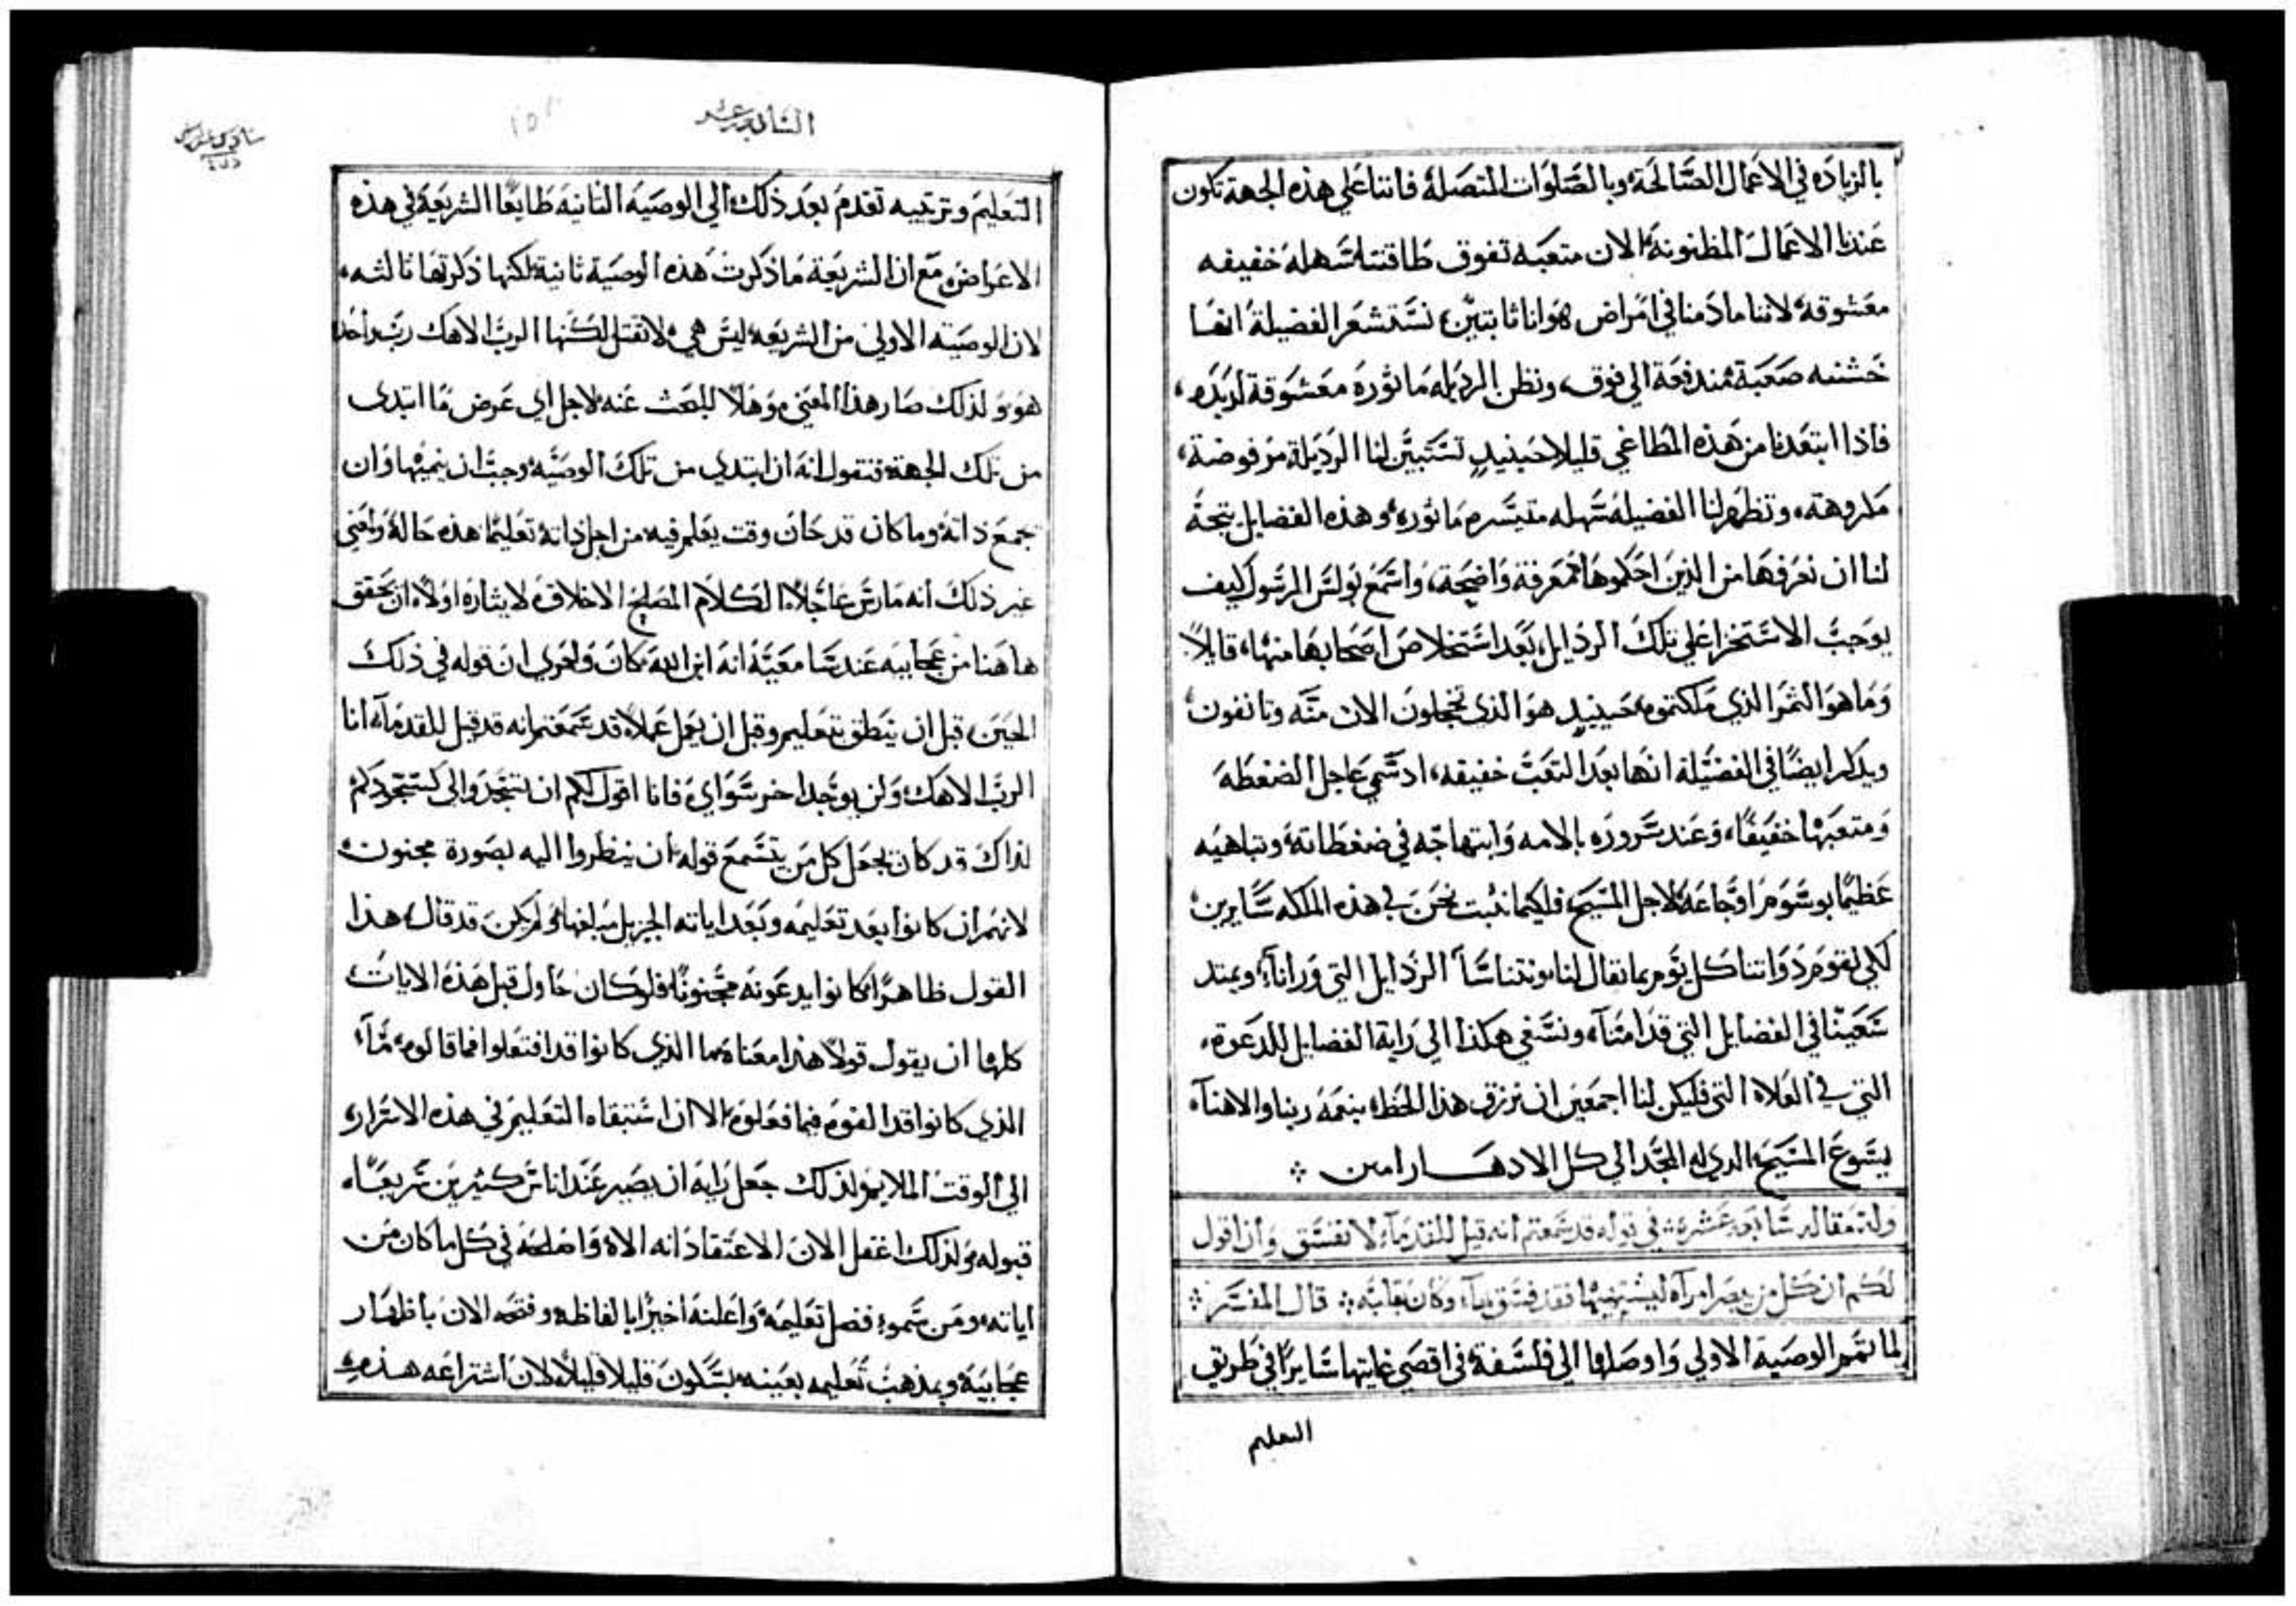 بالزياده في الاعمال الصَّالحَة، وبالصَّلوَات المتصَلهُ فاننا عَلي هذه الجهة تكون
عَندنا الاعمالَ المظنونة الان متعبَه تفوق طاقتنا سَهلهَ خفيفه
معَشوقهَ، لاننا ما دَمنا في امَراض هَوانا ثابتيَن، نسَتشعَر الفضيلة انهَا
خَشنه صَعَبة مندفعَة الي فوق، ونظن الرديله مَاثورة معَشوَقة لديده،
فاذا ابتعَدنا من هَذه المطاغي قليلا حَينيدٍ تسَتَبيَّن لنا الرَديَلة مَرفوضة،
مَكروهَة، وتظهر لنا الفضيلهَ سَهله متيسَره مَاثوره، وهذه الفضايل يتجهُ
لنا ان نعَرَفها من الذين احَكموهَا معَرفة وَاضحَة، وَاسَمعَ بَولسَ الرسَول كيف
يوَجبَ الاسَتخزا عَلي تلكَ الردايل، بَعَد اسَتخلاصَ اصَحابهَا منهَا، قايلاً
وَمَا هوَ الثمَر الذي مَلكتموه حَينيدٍ هوَ الذي تخجلونَ الان منَه وتانفون،
ويدَكر ايضًا في الفضَيلة انهَا بعَد التعَبَ خفيفه، اد سَمي عَاجل الضغطهَ
وَمتعَبَها خفيَفًا، وَعَند سَروره بالامه وَابتهاجَه في ضغَطاتهَ، وتباهيَه
عَظيمًا بوسَومَ اوجَاعَهَ لاجل المسَيَح، فلكيما نثبت نحَنَ في هذه الملكه سَايرين،
لكي نقومَ دَوَاتنا كَل يَوم بما نقال لنا، ونتناسَا الردَايل التي وَرانا، ويمتد
سَعَينَا في الفضايل التي قدَامنَا، ونسَعَي هكذا الي رَاية الفضايل للدعَوة،
التي في العَلاه التي فليكن لنا اجمعَين ان نرزق هذا الحَظ، بنعَمةَ ربنا والاهنا
يسَوعَ المسَيَح، الدي له المجَد الي كل الادهَــار امين ⁘
وله مقاله سَابعَة عَشره، في قوله قد سَمعتم انه قيل للقدمَا، لا تفسَق وَانا اقول
لكَم ان كَل من يبصَر امراه ليشتهيهَا فقد فسَق بها، وكان بقلبَه ⁘ قال المفسَر ⁘
لما تمَم الوصَية الاولي وَاوصَلها الي فلسَفة، في اقصَي غايتها سَايرًا في طريق
التعليم
السَابعة عَشر
التعَليمَ وترتيبه تقدمَ بعَد ذلكَ، الي الوصَيةَ الثانيةَ طايعًا الشريعَة، في هذه
الاعَراضَ، مَع ان الشريعَة مَا ذكرت هذه الوصَية ثانية، لكنها ذكرتهَا ثالثه،
لان الوصَيته الاولي من الشريعَه، ليسَ هي، لا تقتل لكَنها الربَ الاهك ربَ وَاحَد
هوَ وَلذلك صَار هذا المعَني، وَهَلا للبحَث عَنه، لاجل اي عَرض مَا ابتدي
من تلك الجهة، فنقول انهَ ان ابتدي من تلكَ الوصَيَه، وجبَ ان ينميَها وَان
يجمعَ ذاتهَ، وما كان قد حَان وقت يعَلم فيه من اجل ذاتهَ تعَليمًا هذه حَالهُ، وَمَعَني
غير ذلكَ انه مَارسَ عَاجَلاً الكَلامَ المصَلح الاخلاق، لايثاره اولاً، ان يحَقق
هاهَنا من عجَايبه عَند سَامعَيَهُ انهَ ابن اللهَ كانَ، وَاحَري ان قوله في ذلكَ
الحَينَ، قبل ان يَنطق بتعَليم، وقبل ان يعَمل عَملاً، قد سَمَعَتم انه قد قيل للقدمَا، انا
الربَ الاهكَ، وَلن يوَجدَ اخر سَوَاي، فانا اقول لكم ان تسَجَدوا لي كسَجَودكم
لذاكَ قد كان يجعَل كل مَن يسَمعَ قوله، ان ينظروا اليه بصَورة مجنون،
لانهَم ان كانوا بعَد تعَليمَه وبَعَد اياته الجزيل مَبلغها، وَلم يكنَ قد قال، هذا
القول ظاهرًا، كانوا يدعَونه مجَنونًا، فلو كان حَاول قبل هَذه الاياتَ
كلهَا ان يقول قولاً هذا معَناه، مَا الذي كانوا قد افتعَلوا فما قالوه، مَا،
الذي كانوا قد القوم فيما فعَلوه، الا ان اسَتبقاه التعَليمَ في هذه الاسَرار،
الي الوقت الملايم، ولذلك جعَل رَايهَ ان يصَير عَند اناسَ كثيرين سَريعًا،
قبوله، ولذلك اغفل الانَ الاعَتقادَ انه الاه، وَاصَلحَه في كَل ما كان من
اياته، ومَن سَمو، فضل تعَليمَه، وَاعَلنهَ اخيرًا بالفاظه، وفتحَه الانَ باظهَار
عجَايبَه، وبمذهبَ تعَليمه بعَينه، بسَكون قليلا قليلاً، لان اشتراعَه هَذه